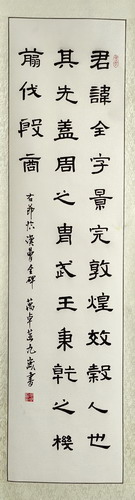 君諱全字景完敦煌效穀人也
其先蓋周之胄武王秉乾之機
翦伐殷商
右節臨漢曹全碑
九歲書